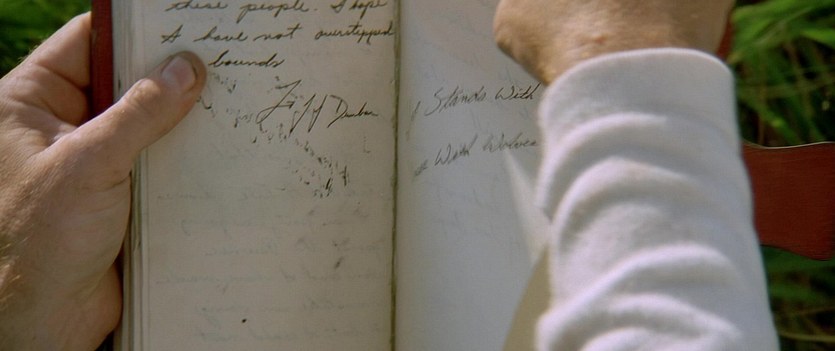 these people. I hope
I have not overstepped
bounds
Lt JJ Dunbar
Stands With
With Wolves